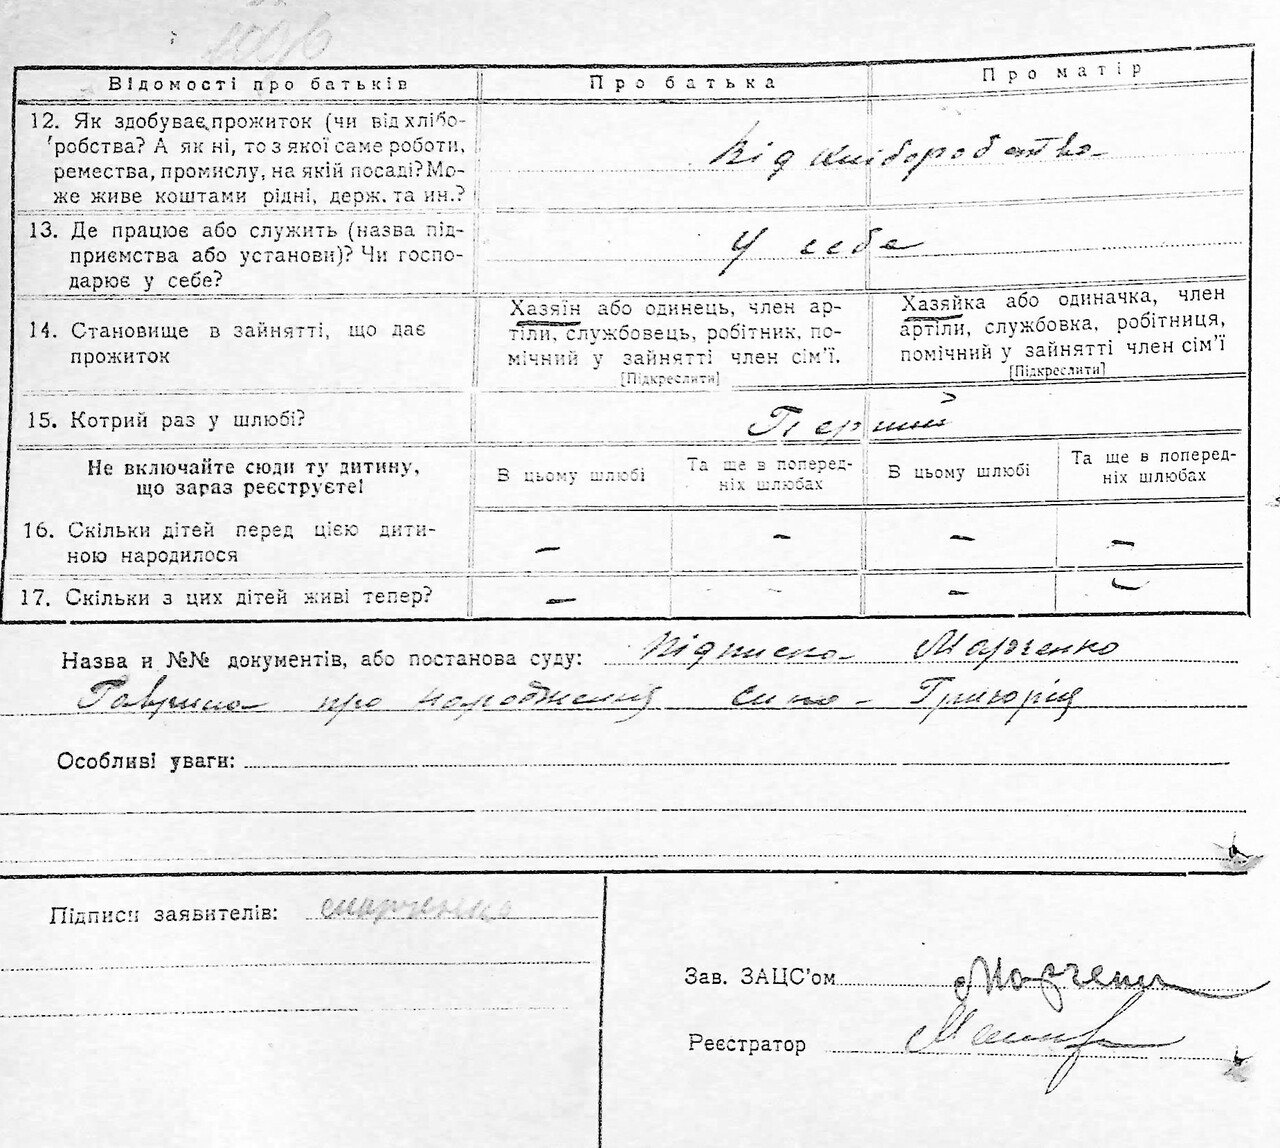 Відомості про батьків Про батька Про матір
12. Як здобуває прожиток (чи від хлібо-
робства? А як ні, то з якої саме роботи,
ремества, промислу, на якій посаді? Мо-
же живе коштами рідні, держ. та ин.?
Від хліборобства
13. Де працює або служить (назва під-
приємства або установи)? Чи госпо-
дарює у себе?
У себе
14. Становище в зайнятті, що дає
прожиток
Хазяїн або одинець, член ар-
тіли, службовець, робітник, по-
мічний у зайнятті член сім'ї.
[Підкреслити]
Хазяйка або одиначка, член
артіли, службовка, робітниця,
помічний у зайнятті член сім'ї
[Підкреслити]
15. Котрий раз у шлюбі?
Перший
Не включайте сюди ту дитину,
що зараз реєструєте!
В цьому шлюбі
Та ще в поперед-
ніх шлюбах
В цьому шлюбі
Та ще в поперед-
ніх шлюбах
16. Скільки дітей перед цією дити-
ною народилося
— — — —
17. Скільки з цих дітей живі тепер?
— — —
Назва и №№ документів, або постанова суду: Підписка Марченко
Гаврила про народження сина Григорія
Особливі уваги:
Підписи заявителів: Марченко
Зав. ЗАЦС'ом Марченко
Реєстратор